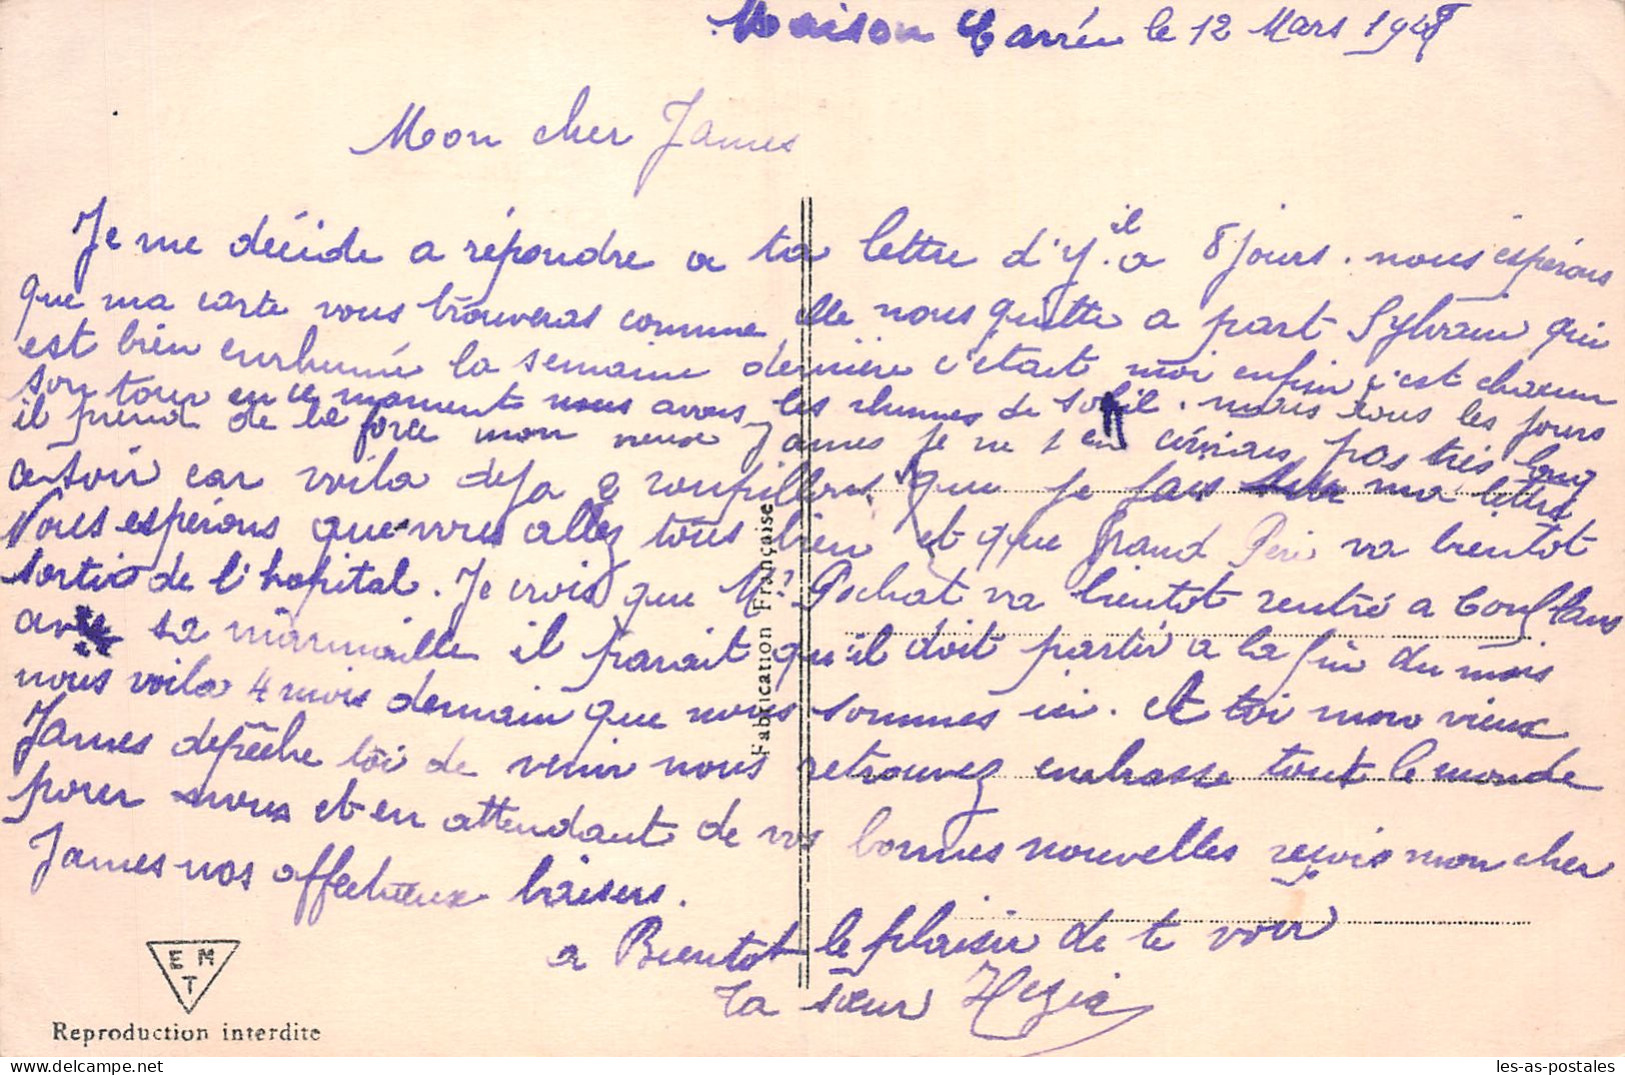 Maison Carrée le 12 Mars 194
Mon cher James
Je me décide a répondre a ta lettre d'y il a 8 jours. nous espérons
que ma carte vous trouveras comme elle nous quitte a part Sylvain qui
est bien enrhumé la semaine dernière c'était moi enfin c'est chacun
son tour en ce moment nous avons les rhumes de soleil. mais tous les jours
il prend de la force mon vieux James je ne t'en écrirais pas très long
ce soir car voila deja roupillers que je fais sur ma lettre
Nous espérons que vous allez tous bien et que Grand Père va bientot
sortir de l'hopital. Je crois que Mr Pochat va bientot rentré a Conflans
avec sa marmaille il parait qu'il doit partir a la fin du mois
nous voila 4 mois demain que nous sommes ici. Et toi mon vieux
James depêche toi de venir nous retrouvez embrasse tout le monde
pour nous et en attendant de vos bonnes nouvelles reçois mon cher
James nos affectueux baisers.
a Bientot le plaisir de te voir
Ta sœur
Fabrication Française
E M T
Reproduction interdite
les-as-postales